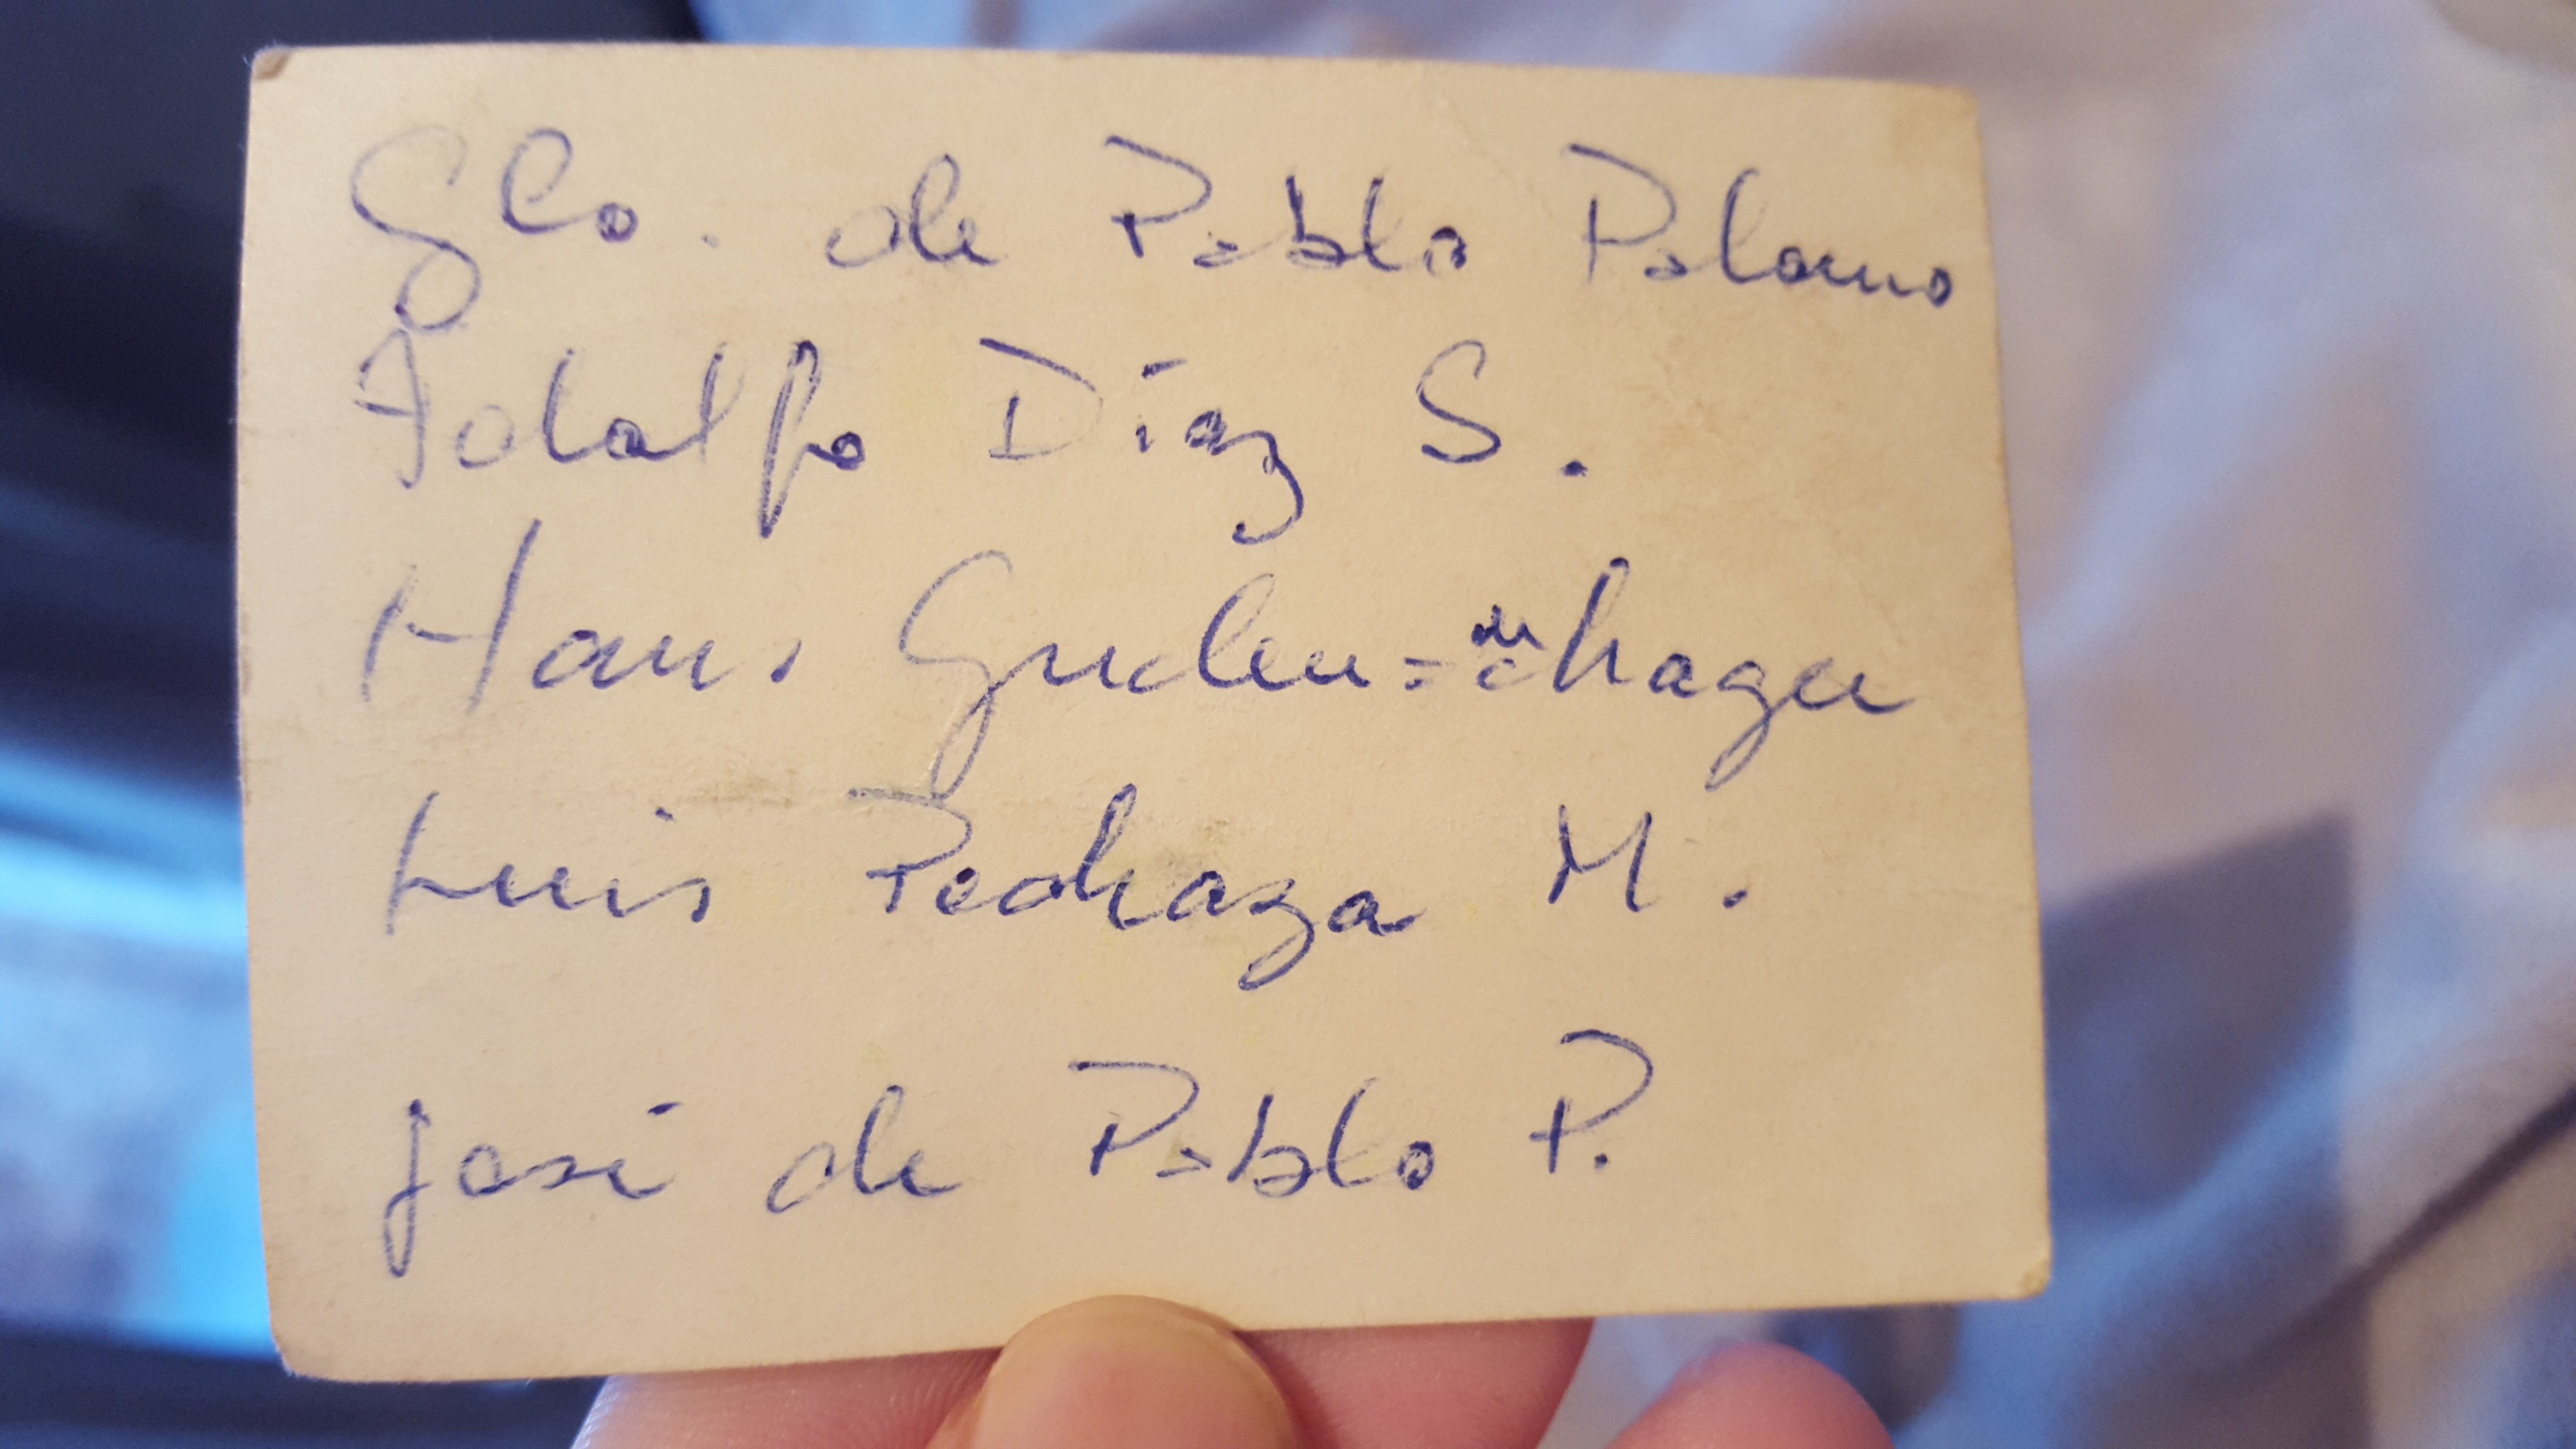 Glo. de Pablo Palomo
Adolfo Díaz S.
Hans
Luis Pedraza M.
José de Pablo P.